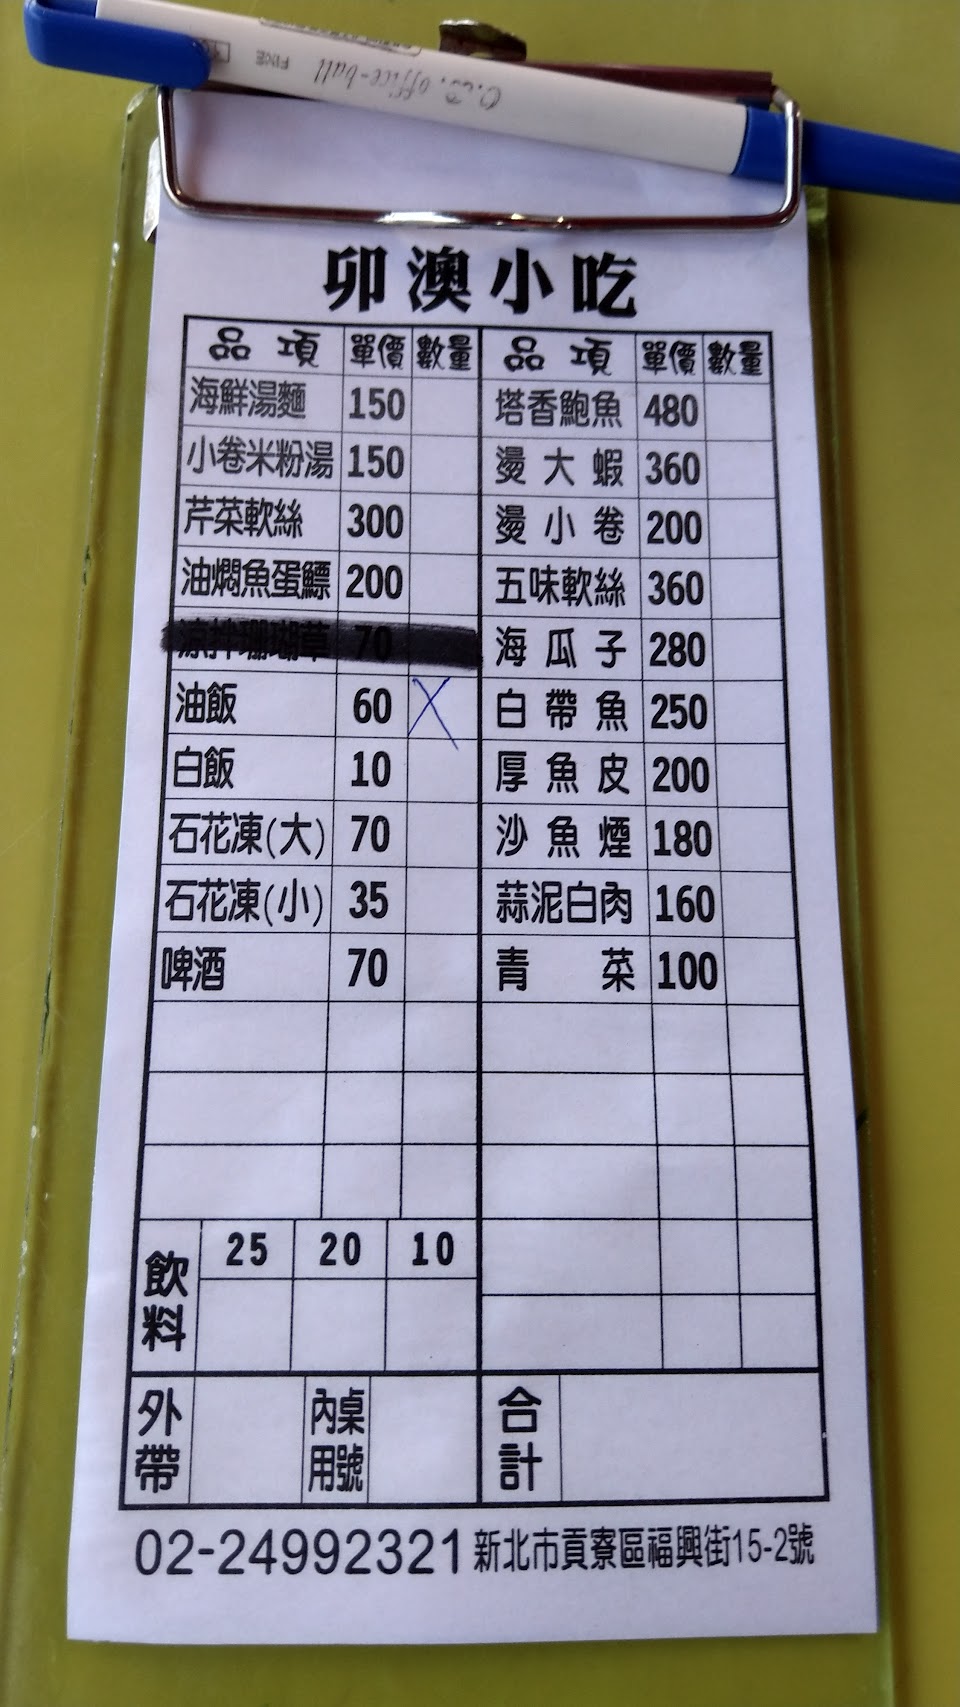 O.B. office-ball
FINE
卯澳小吃
品項 單價 數量 品項 單價 數量
海鮮湯麵 150 塔香鮑魚 480
小卷米粉湯 150 燙大蝦 360
芹菜軟絲 300 燙小卷 200
油燜魚蛋鰾 200 五味軟絲 360
涼拌珊瑚草 70 海瓜子 280
油飯 60 X 白帶魚 250
白飯 10 厚魚皮 200
石花凍(大) 70 沙魚煙 180
石花凍(小) 35 蒜泥白肉 160
啤酒 70 青菜 100
飲料 25 20 10
外帶 內用 桌號 合計
02-24992321 新北市貢寮區福興街15-2號